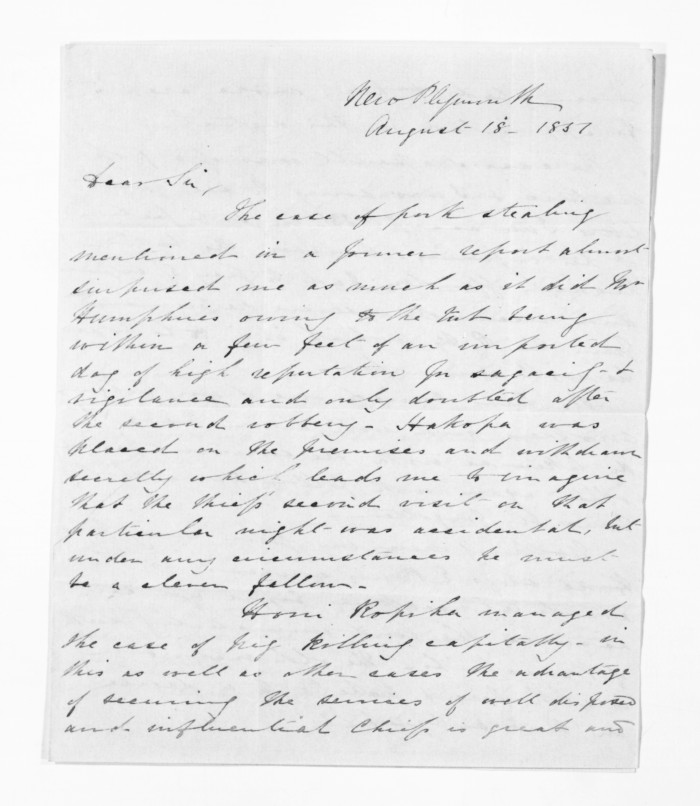 New Plymouth
August 18 - 1851
Dear Sir,
The case of pork stealing
mentioned in a former report almost
surprised me as much as it did Mr
Humphries owing to the being
within a few feet of an imported
dog of high reputation for sagacity &
vigilance and only doubted after
the second robbery - Hakopa was
placed on the premises and withdrawn
secretly which leads me to imagine
that the thief's second visit on that
particular night was accidental, but
under any circumstances he must
be a clever fellow.
Honi Ropiha managed
the case of pig killing capitally - in
this as well as other cases the advantage
of securing the services of well disposed
and influential Chiefs is great and